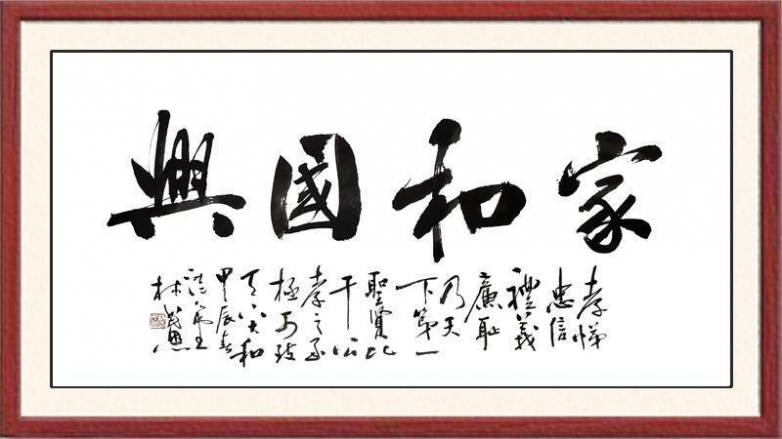 家和國興
孝悌
忠信
禮義
廉恥
乃天
下第一
聖賢比
干公
孝之至
極可致
和
甲辰春
王
林